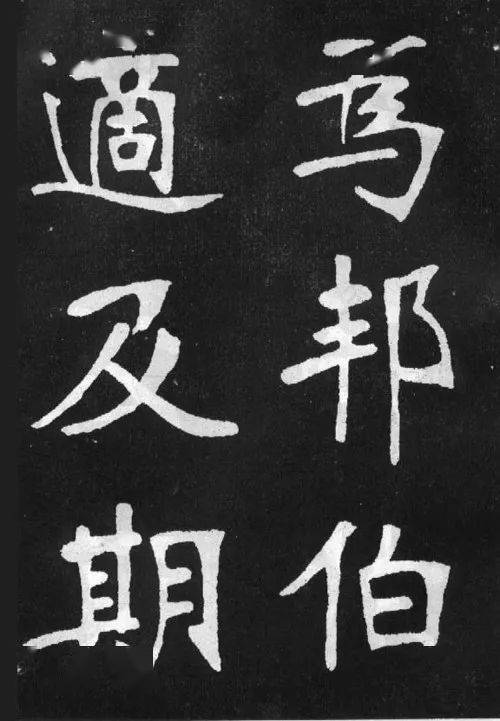 焉邦伯
適及期